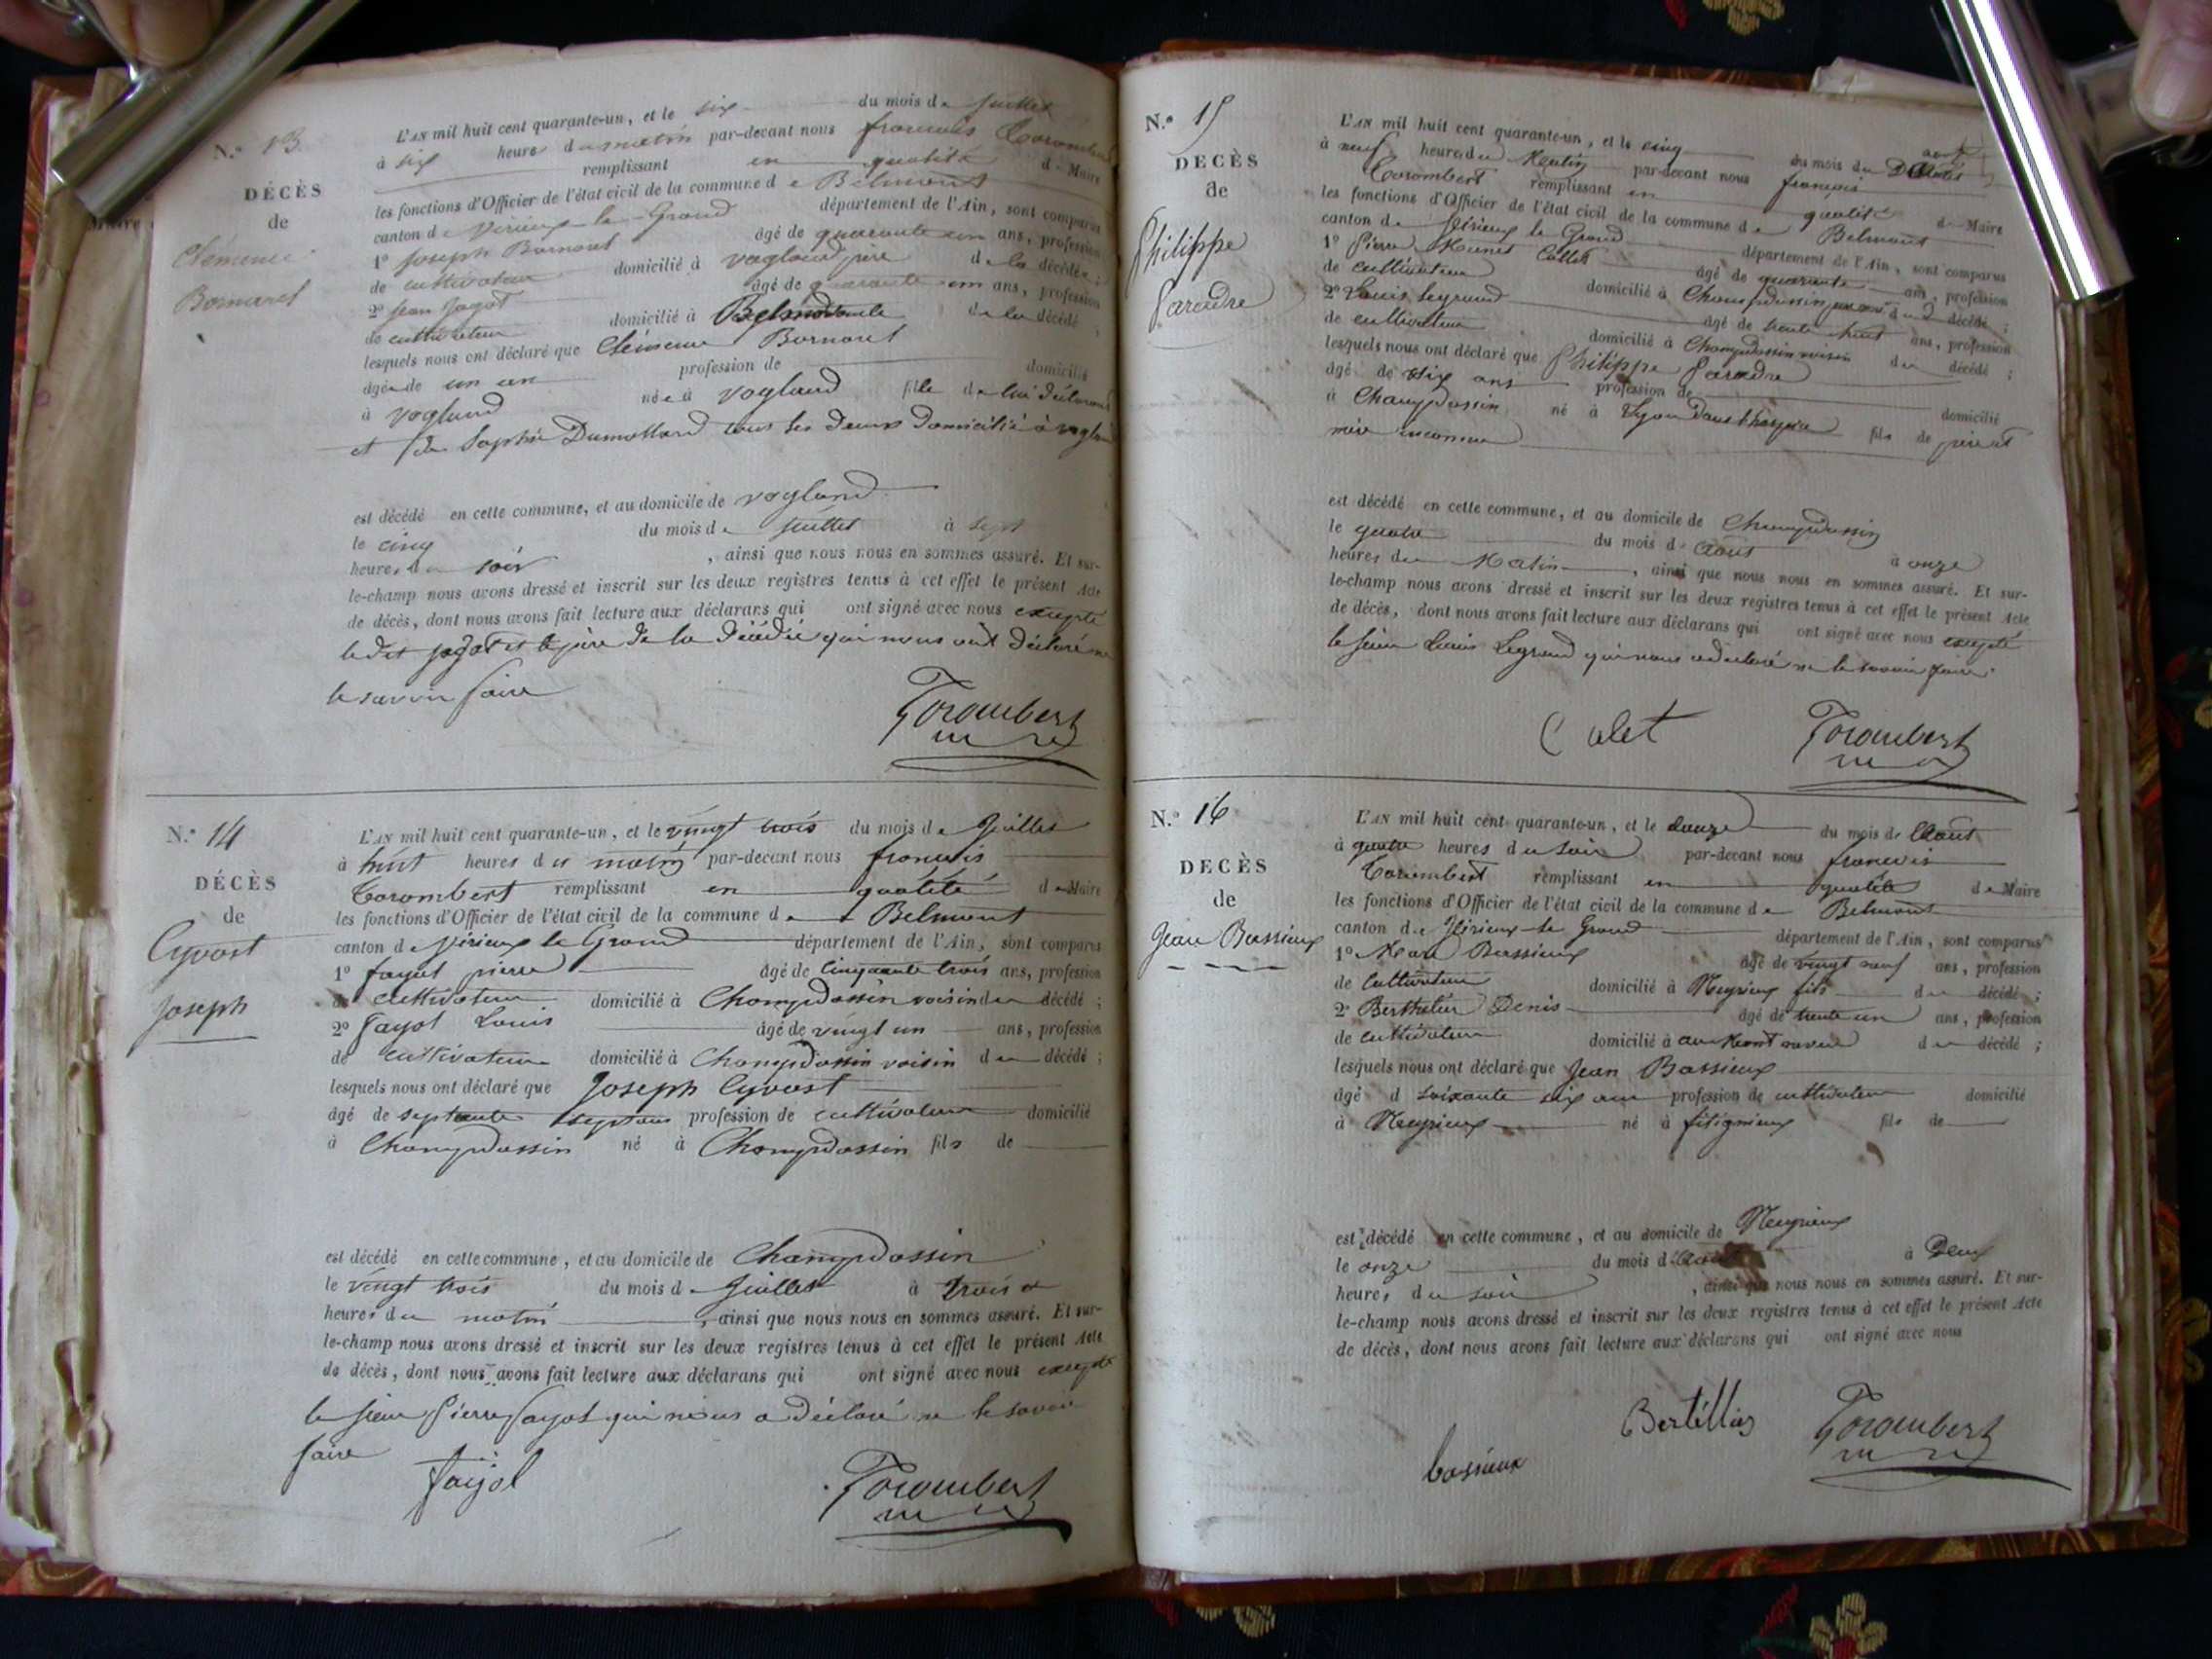 N.° 13
DÉCÈS
de
Clémence
Bornaret
L'AN mil huit cent quarante-un, et le six du mois de Juillet
à six heures du matin par-devant nous françois Corombert
remplissant en qualité de Maire
les fonctions d'Officier de l'état civil de la commune de Belmont
canton de Virieux le Grand département de l'Ain, sont comparus
1° Joseph Bornaret âgé de quarante un ans, profession
de cultivateur domicilié à vogland père de la décédée;
2° Jean Jagot âgé de quarante un ans, profession
de cultivateur domicilié à Belmont de la décédé;
lesquels nous ont déclaré que Clémence Bornaret
âgée de un an profession de domicilié
à vogland née à vogland fille de lui déclarant
et de Sophie Dumollard tous les deux domicilié à vogland
est décédé en cette commune, et au domicile de vogland
le cinq du mois de Juillet à sept
heures du soir, ainsi que nous nous en sommes assuré. Et sur-
le-champ nous avons dressé et inscrit sur les deux registres tenus à cet effet le présent Acte
de décès, dont nous avons fait lecture aux déclarans qui ont signé avec nous excepté
ledit jagot et le père de la décédée qui nous ont déclaré ne
le savoir faire
Corombert
N.° 14
DÉCÈS
de
Cyvost
Joseph
L'AN mil huit cent quarante-un, et le vingt trois du mois de Juillet
à huit heures du matin par-devant nous françois
Corombert remplissant en qualité de Maire
les fonctions d'Officier de l'état civil de la commune de Belmont
canton de Virieux le Grand département de l'Ain, sont comparus
1° fayot pierre âgé de cinquante trois ans, profession
de cultivateur domicilié à Champdossin voisin du décédé;
2° fayot Louis âgé de vingt un ans, profession
de cultivateur domicilié à Champdossin voisin du décédé;
lesquels nous ont déclaré que Joseph Cyvost
âgé de septante sept ans profession de cultivateur domicilié
à Champdossin né à Champdossin fils de
est décédé en cette commune, et au domicile de Champdossin
le vingt trois du mois de Juillet à trois
heures du matin, ainsi que nous nous en sommes assuré. Et sur-
le-champ nous avons dressé et inscrit sur les deux registres tenus à cet effet le présent Acte
de décès, dont nous avons fait lecture aux déclarans qui ont signé avec nous excepté
le sieur Pierre fayot qui nous a déclaré ne le savoir
faire
fayol
Corombert
N.° 15
DECÈS
de
Philippe
Paradre
L'AN mil huit cent quarante-un, et le cinq du mois du août
à neuf heures du Matin par-devant nous françois
Corombert remplissant en qualité de Maire
les fonctions d'Officier de l'état civil de la commune de Belmont
canton de Virieux le Grand département de l'Ain, sont comparus
1° Pierre Collet âgé de quarante ans, profession
de cultivateur domicilié à Champdossin du décédé;
2° Louis Legrand âgé de trente huit ans, profession
de cultivateur domicilié à Champdossin voisin du décédé;
lesquels nous ont déclaré que Philippe Paradre
âgé de six ans profession de domicilié
à Champdossin né à Lyon dans l'hospice fils de père et
mère inconnu
est décédé en cette commune, et au domicile de Champdossin
le quatre du mois d'août à onze
heures du Matin, ainsi que nous nous en sommes assuré. Et sur-
le-champ nous avons dressé et inscrit sur les deux registres tenus à cet effet le présent Acte
de décès, dont nous avons fait lecture aux déclarans qui ont signé avec nous excepté
le sieur Louis Legrand qui nous a déclaré ne le savoir faire.
Colet
Corombert
N.° 16
DECÈS
de
Jean Bassieux
L'AN mil huit cent quarante-un, et le douze du mois de Août
à quatre heures du soir par-devant nous françois
Corombert remplissant en qualité de Maire
les fonctions d'Officier de l'état civil de la commune de Belmont
canton de Virieux le Grand département de l'Ain, sont comparus
1° Marc Bassieux âgé de vingt neuf ans, profession
de Cultivateur domicilié à Meyrieux fils du décédé;
2° Berthelier Denis âgé de trente un ans, profession
de cultivateur domicilié à du décédé;
lesquels nous ont déclaré que Jean Bassieux
âgé d soixante six ans profession de cultivateur domicilié
à Meyrieux né à fitignieux fils de
est décédé en cette commune, et au domicile de Meyrieux
le onze du mois d'août à Deux
heures du soir, ainsi que nous nous en sommes assuré. Et sur-
le-champ nous avons dressé et inscrit sur les deux registres tenus à cet effet le présent Acte
de décès, dont nous avons fait lecture aux déclarans qui ont signé avec nous
bassieux
Bertéllier
Corombert